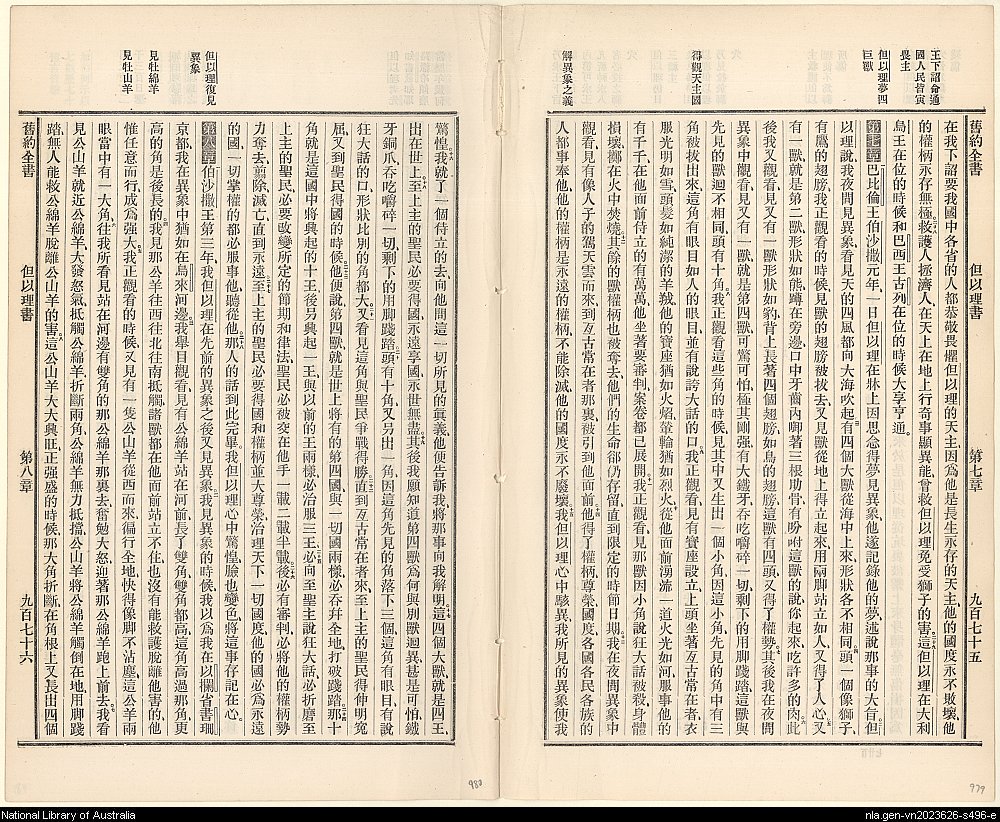 王下詔命通
國人民皆寅
畏主
但以理夢四
巨獸
得觀天主國
解異象之義
舊約全書
但以理書
第七章
九百七十五
在我下詔要我國中各省的人都恭敬畏懼但以理的天主因爲他是長生永存的天主他的國度永不敗壞他
的權柄永存無極救護人拯濟人在天上在地上行奇事顯異能曾救但以理免受獅子的害這但以理在大利
烏王在位的時候和巴西王古列在位的時候大享亨通
第七章巴比倫王伯沙撒元年一日但以理在牀上因思念得夢見異象他遂記錄他的夢述說那事的大旨但
以理說我夜間見異象看見天的四風都向大海吹起有四個大獸從海中上來形狀各不相同頭一個像獅子
有鷹的翅膀我正觀看的時候見獸的翅膀被拔去又見獸從地上得立起來用兩脚站立如人又得了人心又
有一獸就是第二獸形狀如熊蹲在旁邊口中牙齒內啣著三根肋骨有吩咐這獸的說你起來吃許多的肉此
後我又觀看見又有一獸形狀如豹背上長著四個翅膀如鳥的翅膀這獸有四頭又得了權勢其後我在夜間
異象中觀看見又有一獸就是第四獸可驚可怕極其剛强有大鐵牙吞吃嚼碎一切剩下的用脚踐踏這獸與
先見的獸迥不相同頭有十角我正觀看這些角的時候見其中又生出一個小角因這小角先見的角中有三
角被拔出來這角有眼目如人的眼目並有說誇大話的口我正觀看見有寶座設立上頭坐著亙古常在者衣
服光明如雪頭髮如純潔的羊羢他的寶座猶如火焰輦輪猶如烈火從他面前湧流一道火光如河服事他的
有千千在他面前侍立的有萬萬他坐着要審判案卷都已展開我正觀看見那獸因小角說狂大話被殺身體
損壞擲在火中焚燒其餘的獸權柄也被奪去他們的生命卻仍存留直到限定的時節日期我在夜間異象中
觀看見有像人子的駕天雲而來到亙古常在者那裏被引到他面前他得了權柄尊榮國度各國各民各族的
人都事奉他他的權柄是永遠的權柄不能除滅他的國度永不廢壞我但以理心中駭異我所見的異象使我
但以理復見
異象
見牡綿羊
見牡山羊
驚惶我就了一個侍立的去向他問這一切所見的眞義他便告訴我將那事向我解明這四個大獸就是四王
出在世上至上主的聖民必得國永遠享國永世無盡其後我願知道第四獸爲何與別獸迥異甚是可怕鐵
牙銅爪吞吃嚼碎一切剩下的用脚踐踏頭有十角又另出一角因這角先見的角落下三個這角有眼目有說
狂大話的口形狀比別的角都大又看見這角與聖民爭戰得勝直到亙古常在者來至上主的聖民得伸明寃
屈又到聖民得國的時候他便說第四獸就是世上將有的第四國與一切國兩樣必吞并全地打破踐踏那十
角就是這國中將興起的十王後另興起一王與以前的王兩樣必治服三王必向至聖主說狂大話必折磨至
上主的聖民必要改變所定的節期和律法聖民必被交在他手一載二載半載後必有審判必將他的權柄勢
力奪去剪除滅亡直到永遠至上主的聖民必要得國和權柄並大尊榮治理天下一切國度他的國必爲永遠
的國一切掌權的都必服事他聽從他那人的話到此完畢我但以理心中驚惶臉也變色將這事存記在心
第八章伯沙撒王第三年我但以理在先前的異象之後又見異象我見異象的時候我以爲我在以攔省書珊
京都我在異象中猶如在烏來河邊我舉目觀看見有公綿羊站在河前長了雙角雙角都高這角高過那角更
高的角是後長的我見那公羊往西往北往南抵觸諸獸都在他面前站立不住也沒有能救護脫離他害的他
惟任意而行成爲强大我正觀看的時候又見有一隻公山羊從西而來徧行全地快得像脚不沾塵這公羊兩
眼當中有一大角往我所看見站在河邊有雙角的那公綿羊那裏去奮勉大怒迎著那公綿羊跑上前去我看
見公山羊就近公綿羊大發怒氣抵觸公綿羊折斷兩角公綿羊無力抵擋公山羊將公綿羊觸倒在地用脚踐
踏無人能救公綿羊脫離公山羊的害這公山羊大大興旺正强盛的時候那大角折斷在角根上又長出四個
舊約全書
但以理書
第八章
九百七十六
980
979
National Library of Australia
nla.gen-vn2023626-s496-e